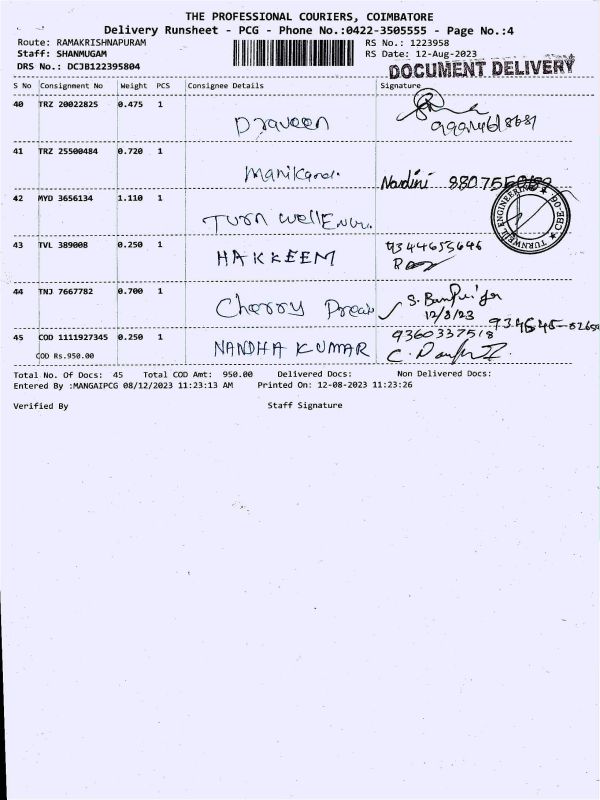 THE PROFESSIONAL COURIERS, COIMBATORE
Delivery Runsheet - PCG - Phone No.:0422-3505555 - Page No.:4
Route: RAMAKRISHNAPURAM RS No.: 1223958
Staff: SHANMUGAM RS Date: 12-Aug-2023
DRS No.: DCJB122395804 DOCUMENT DELIVERY
S No Consignment No Weight PCS Consignee Details Signature
40 TRZ 20022825 0.475 1
Praveen
41 TRZ 25500484 0.720 1
Manikand.
42 MYD 3656134 1.110 1
Turn well
TURNWELL ENGINEERING ★ CBE-06 ★
43 TVL 389008 0.250 1
HAKKEEM 9344653646
44 TNJ 7667782 0.700 1
Cherry
12/8/23
45 COD 1111927345 0.250 1 9360337518
NANDHA KUMAR
COD Rs.950.00
Total No. Of Docs: 45 Total COD Amt: 950.00 Delivered Docs: Non Delivered Docs:
Entered By :MANGAIPCG 08/12/2023 11:23:13 AM Printed On: 12-08-2023 11:23:26
Verified By Staff Signature